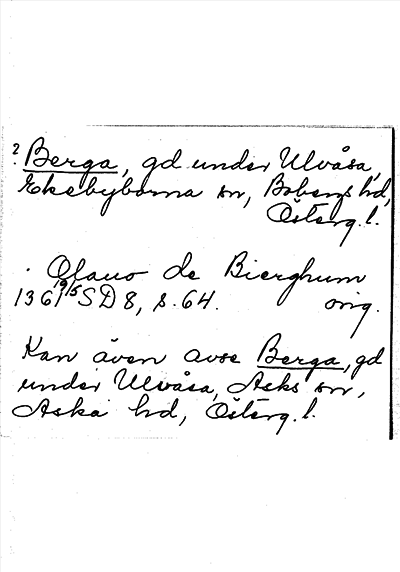 ? Berga, gd under Ulvåsa,
Ekebyborna sn, Bobergs hd,
Österg. l.
Olauo de Bierghum
1361 19/5 SD 8, s. 64. orig.
Kan även avse Berga, gd
under Ulvåsa, Asks sn,
Aska hd, Österg. l.